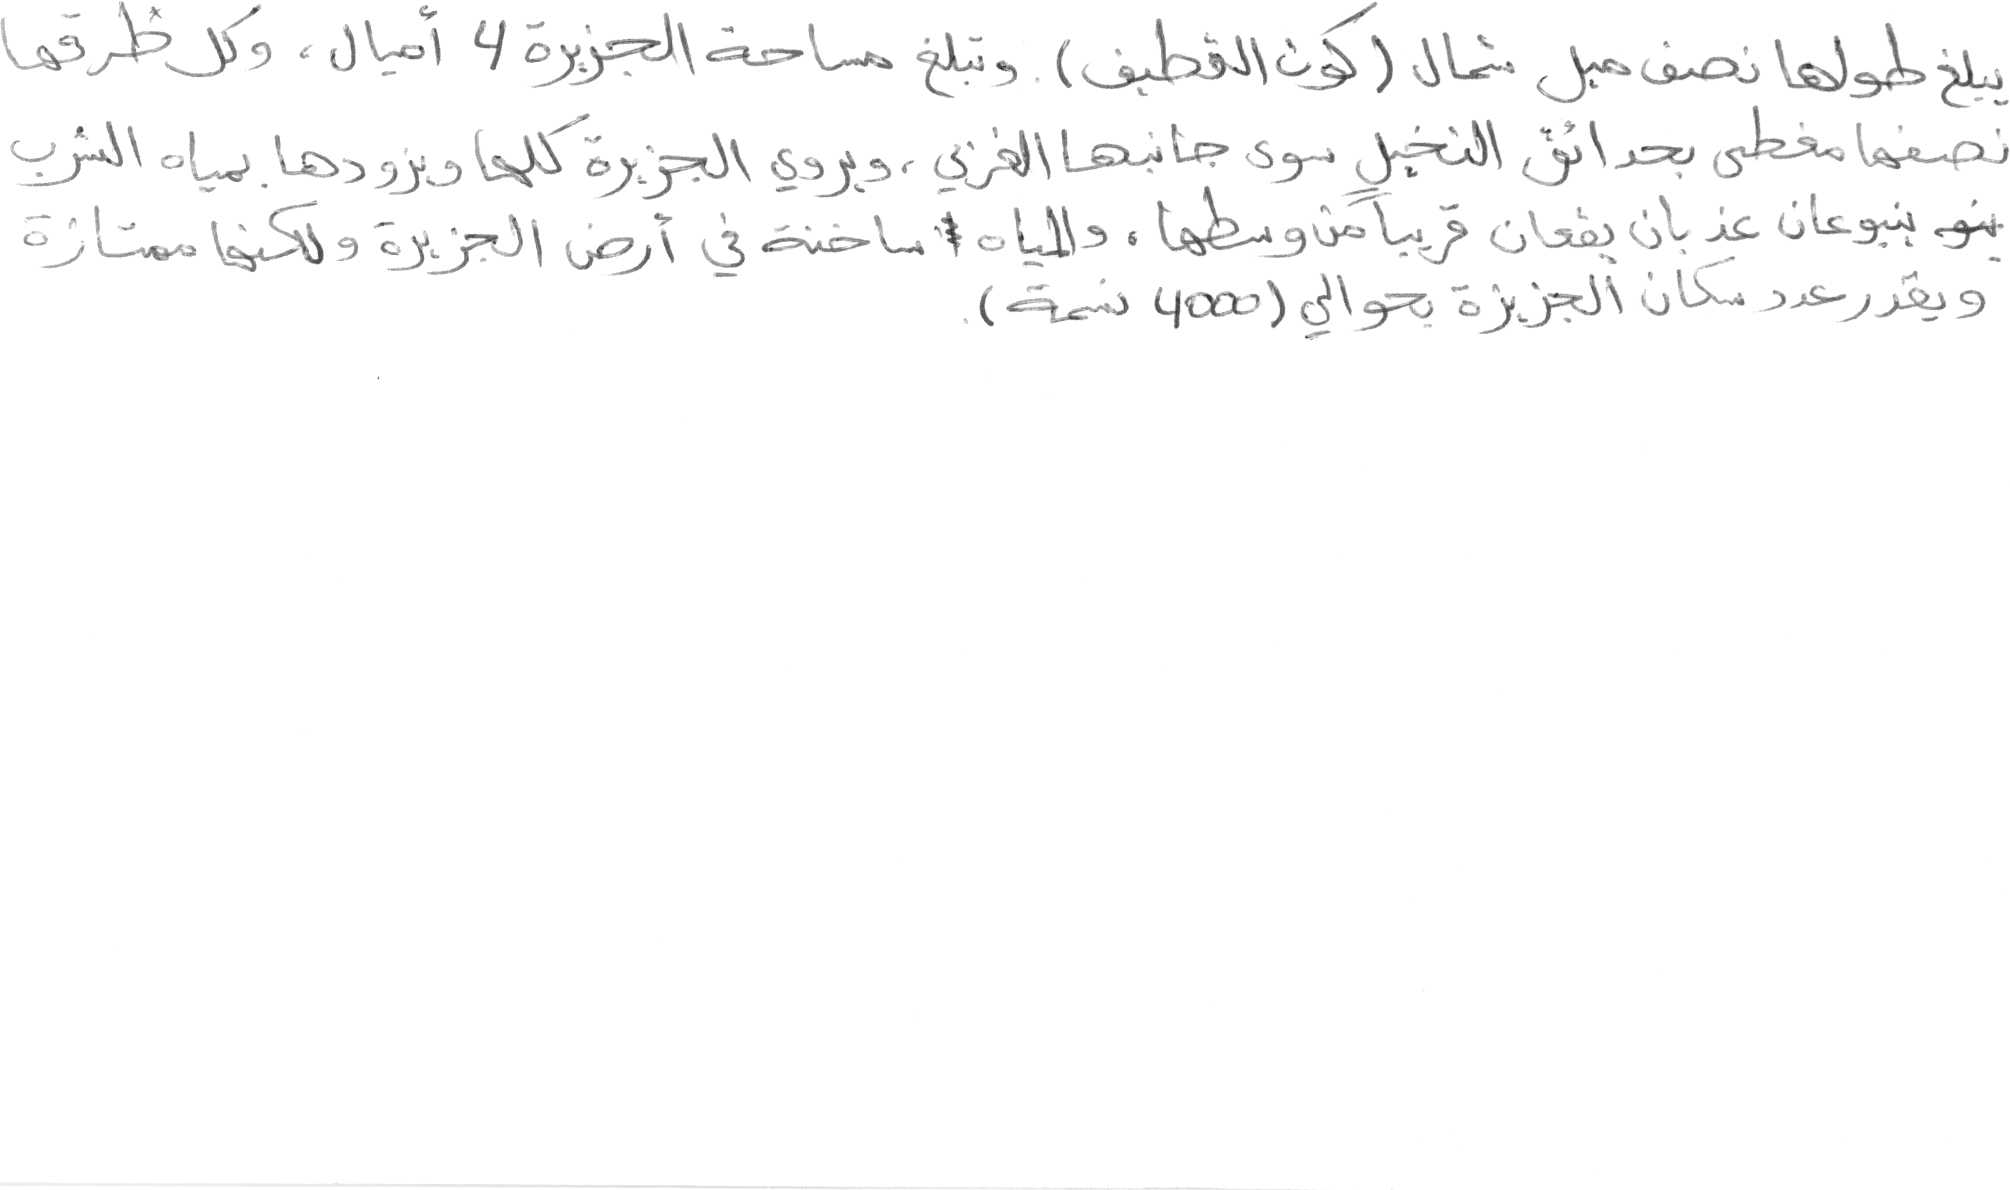 يبلغ طولها نصف ميل شمال (كوت القطيف). وتبلغ مساحة الجزيرة 4 أميال، وكل طرقها
نصفها مغطى بحدائق النخيل سوى جانبها الغربي، ويروي الجزيرة كلها ويزودها بمياه الشرب
ينبوعان عذبان يقعان قريباً من وسطها، والمياه ساخنة في أرض الجزيرة ولكنها ممتازة
ويقدر عدد سكان الجزيرة بحوالي (4000 نسمة).